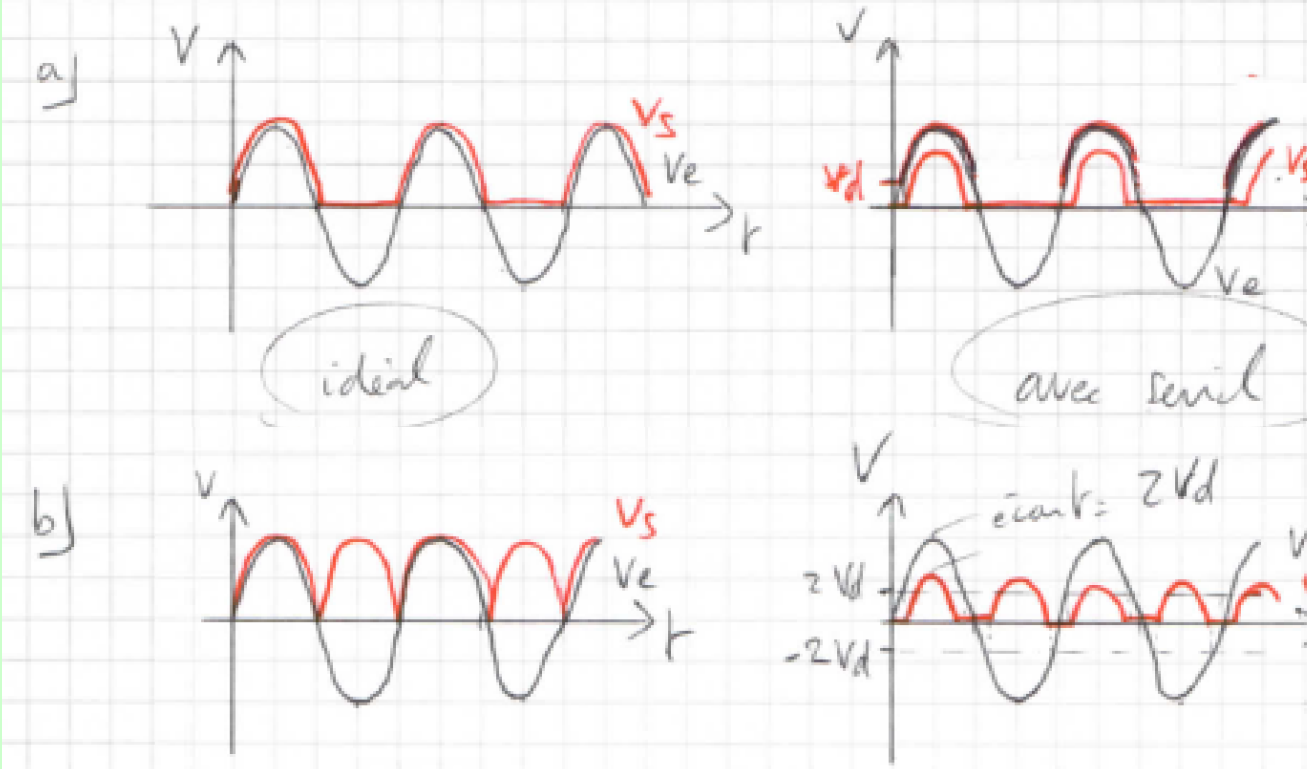 a)
V
Vs
Ve
t
idéal
V
Vd
Vs
Ve
avec seuil
b)
V
Vs
Ve
t
V
écart = 2Vd
2Vd
-2Vd
V